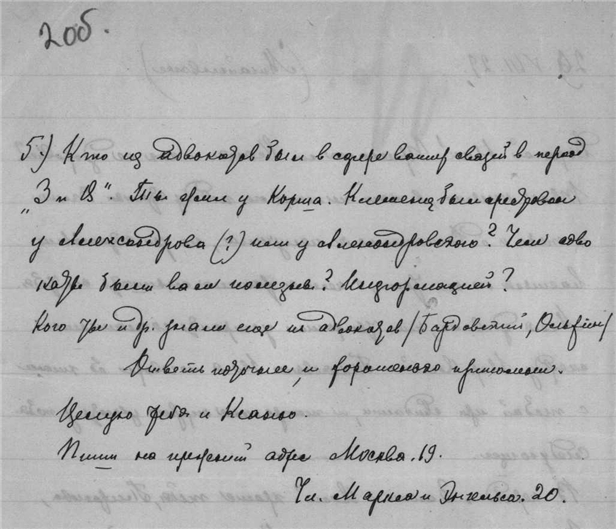 20б.
5) Кто из адвокатов был в сфере ваших связей в период
„З и В". Ты жил у Корша. Клеменц был арестован
у Александрова (?) или у Александровского? Чем адво
каты были вам полезны? Информацией?
Кого ты и др. знали еще из адвокатов /Бардовский, Ольхин/
Ответь поточнее, и хорошенько припомни.
Целую тебя и Ксаню.
Пиши на прежний адрес Москва. 19.
Ул. Маркса и Энгельса. 20.